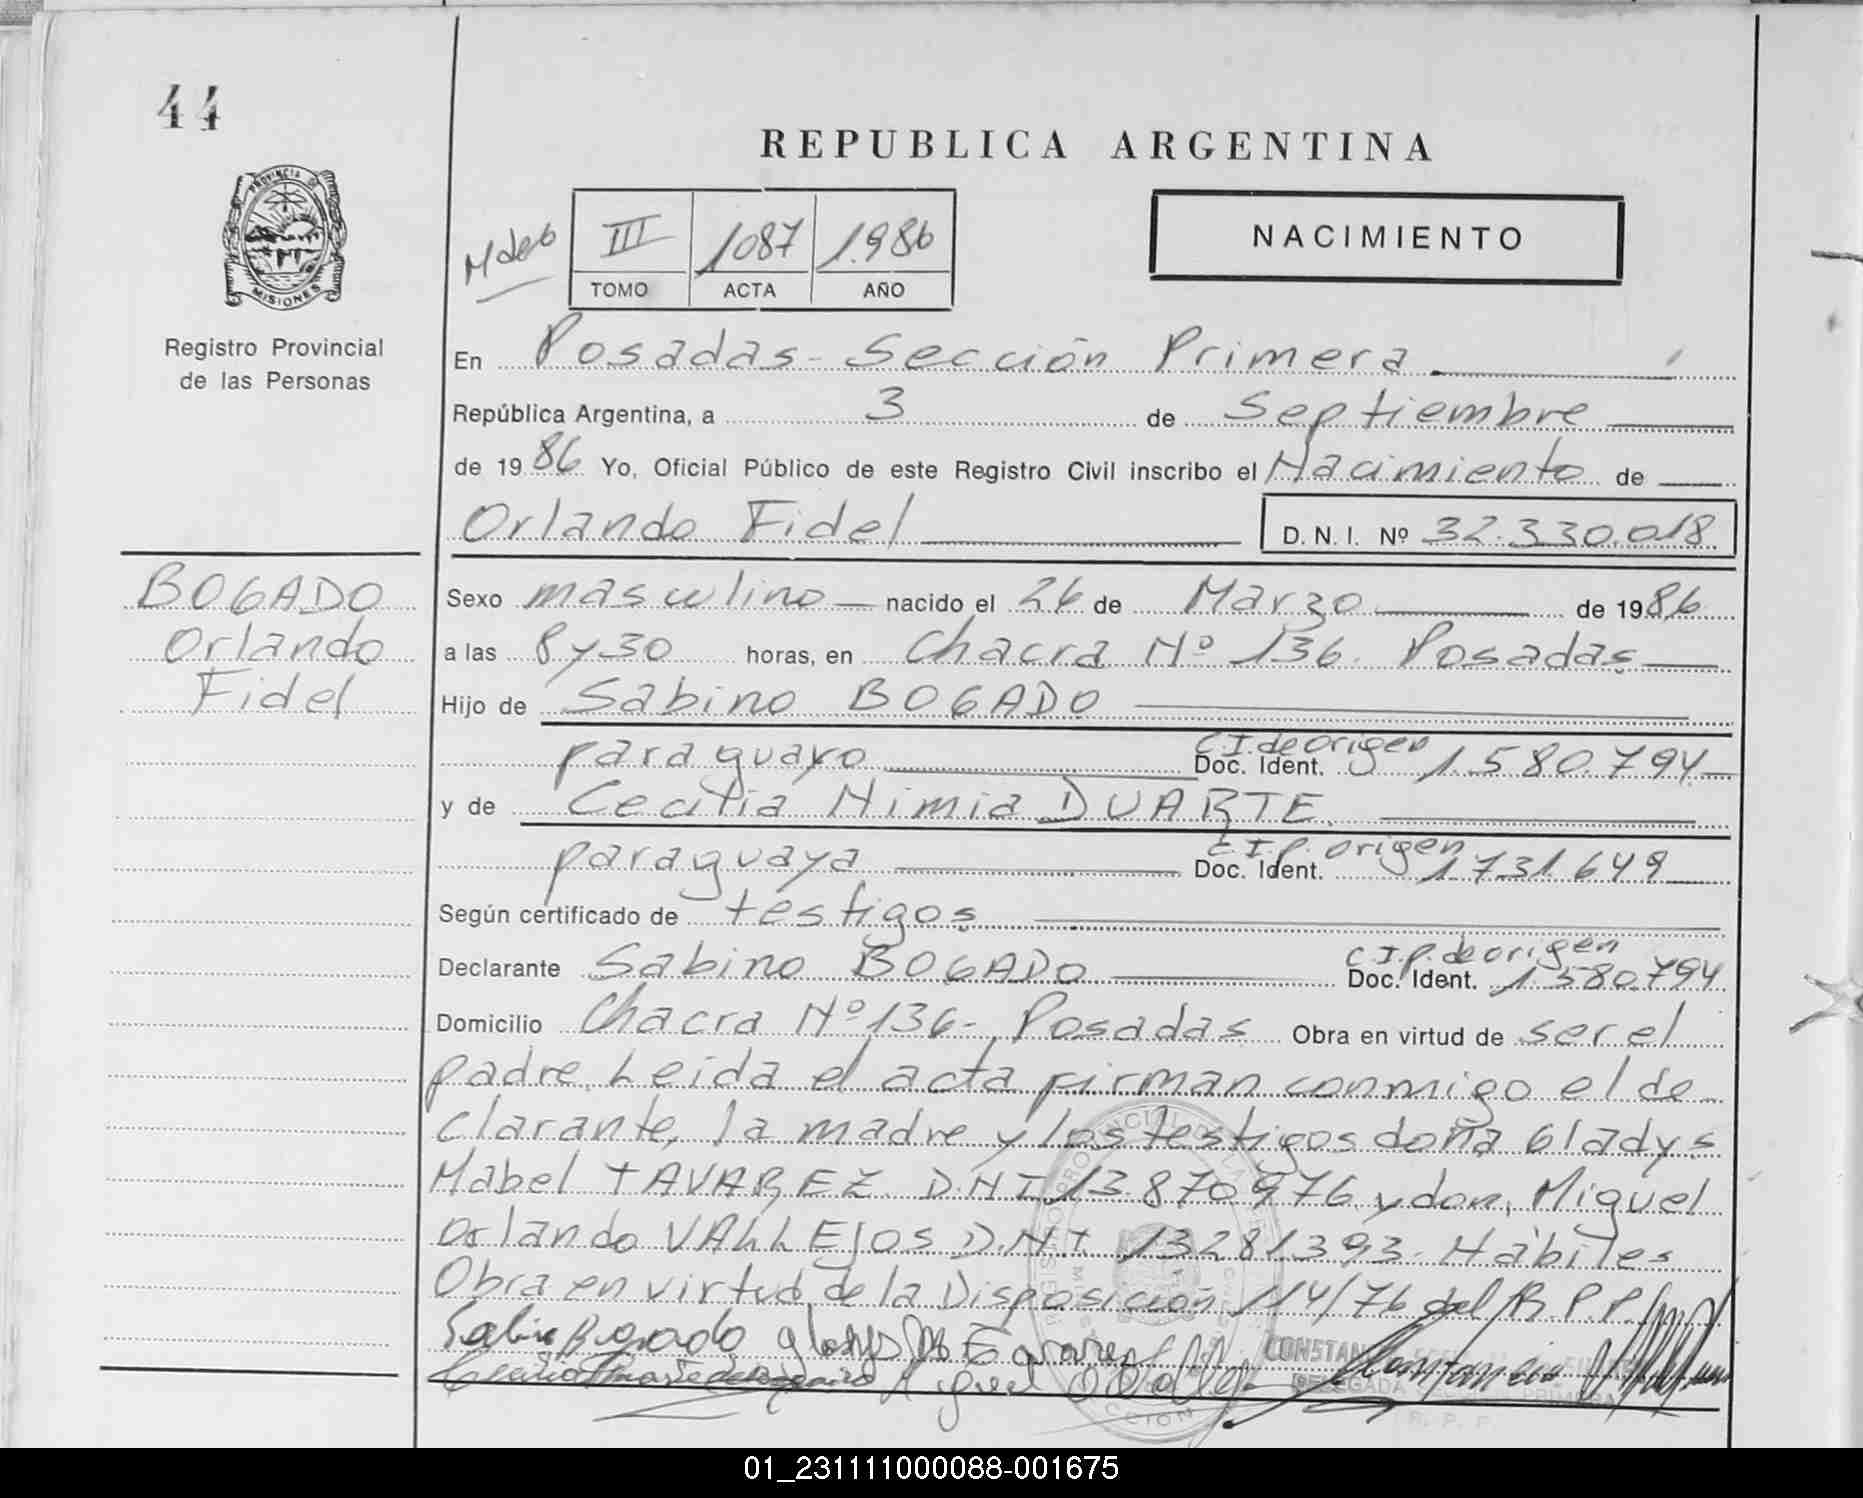 44
REPUBLICA ARGENTINA
PROVINCIA DE
MISIONES
Registro Provincial
de las Personas
III 1087 1.986
TOMO ACTA AÑO
NACIMIENTO
En Posadas - Sección Primera
República Argentina, a 3 de Septiembre
de 19 86 Yo, Oficial Público de este Registro Civil inscribo el Nacimiento de
Orlando Fidel D. N. I. Nº 32.330.018
BOGADO
Orlando
Fidel
Sexo masculino nacido el 26 de Marzo de 19 86
a las 8 y 30 horas, en Chacra Nº 136. Posadas
Hijo de Sabino BOGADO
paraguayo C.I. de origen Doc. Ident. 1.580.794
y de Cecilia Nimia DUARTE.
paraguaya C.I.p. origen Doc. Ident. 1731649
Según certificado de testigos
Declarante Sabino BOGADO C.I.p. de origen Doc. Ident. 1.580.794
Domicilio Chacra Nº 136 - Posadas Obra en virtud de ser el
padre. Leida el acta firman conmigo el de
clarante, la madre y los testigos doña Gladys
Mabel TAVAREZ D.N.I. 13.870976 y don, Miguel
Orlando VALLEJOS D.N.I. 13281393. Hábiles
Obra en virtud de la Disposición 114/76 del R.P.P.
Sabino Bogado
01_231111000088-001675